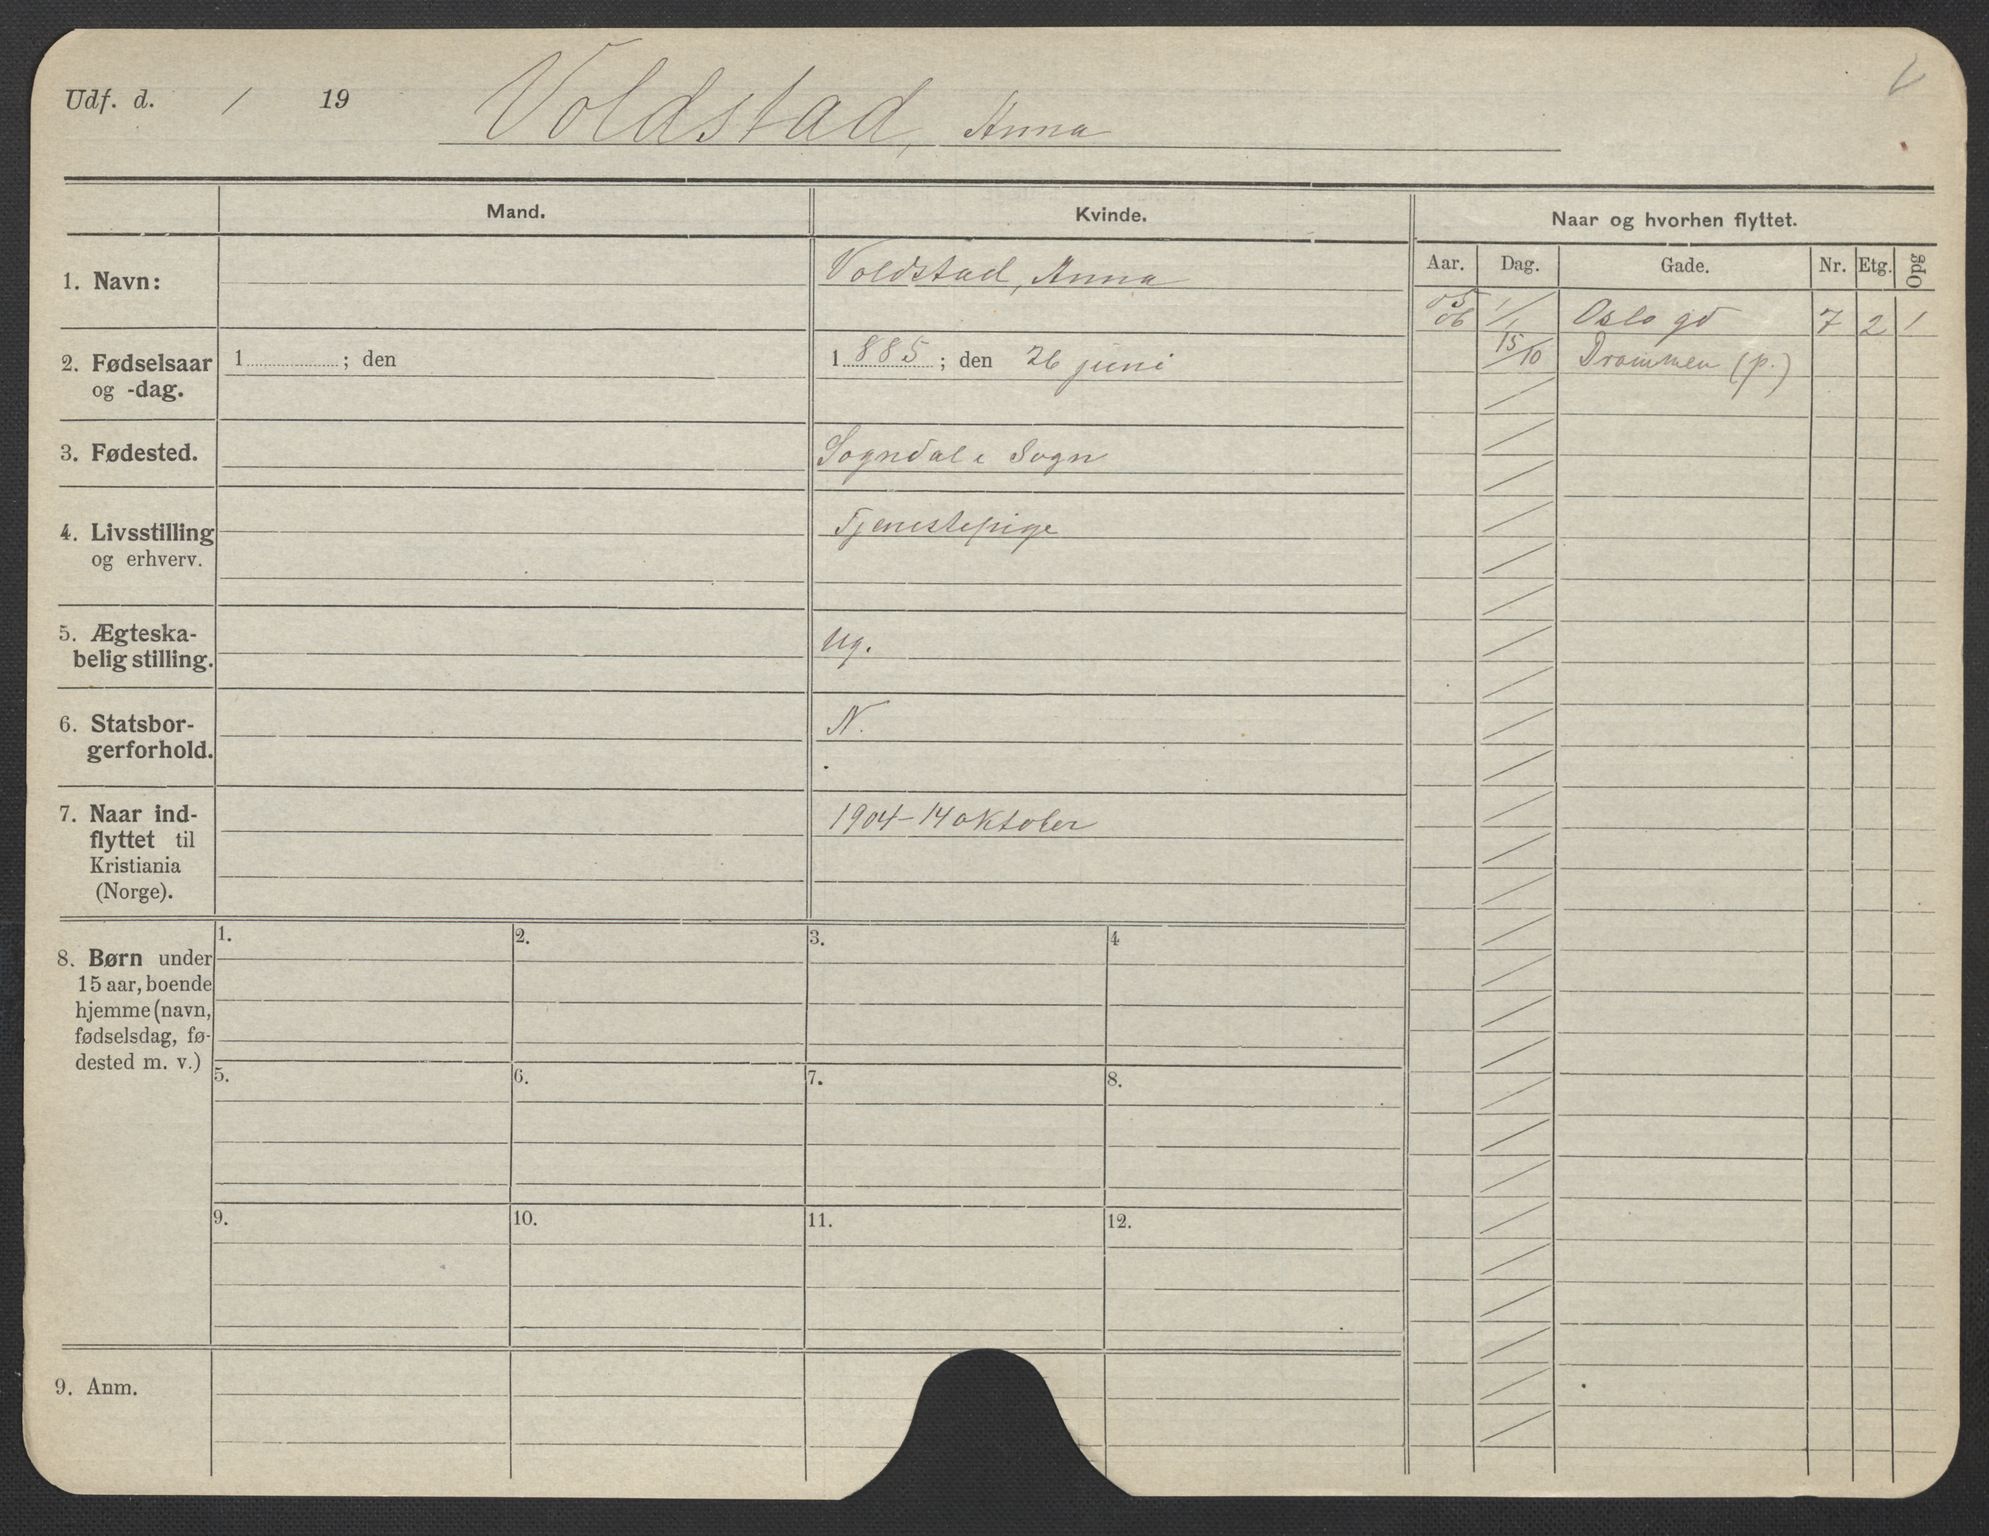 Udf. d. / 19
Voldstad, Anna
Mand.
Kvinde.
Naar og hvorhen flyttet.
Aar. Dag. Gade. Nr. Etg. Opg
1. Navn:
Voldstad, Anna
05 1/1 Oslo gd 7 2 1
06 15/10 Drammen (p.)
2. Fødselsaar
og -dag.
1 ; den
1 885 ; den 26 juni
3. Fødested.
Sogndal i Sogn
4. Livsstilling
og erhverv.
Tjenestepige
5. Ægteska-
belig stilling.
ug.
6. Statsbor-
gerforhold.
N.
7. Naar ind-
flyttet til
Kristiania
(Norge).
1904 - 14 oktober
8. Børn under
15 aar, boende
hjemme (navn,
fødselsdag, fø-
dested m. v.)
1. 2. 3. 4
5. 6. 7. 8.
9. 10. 11. 12.
9. Anm.